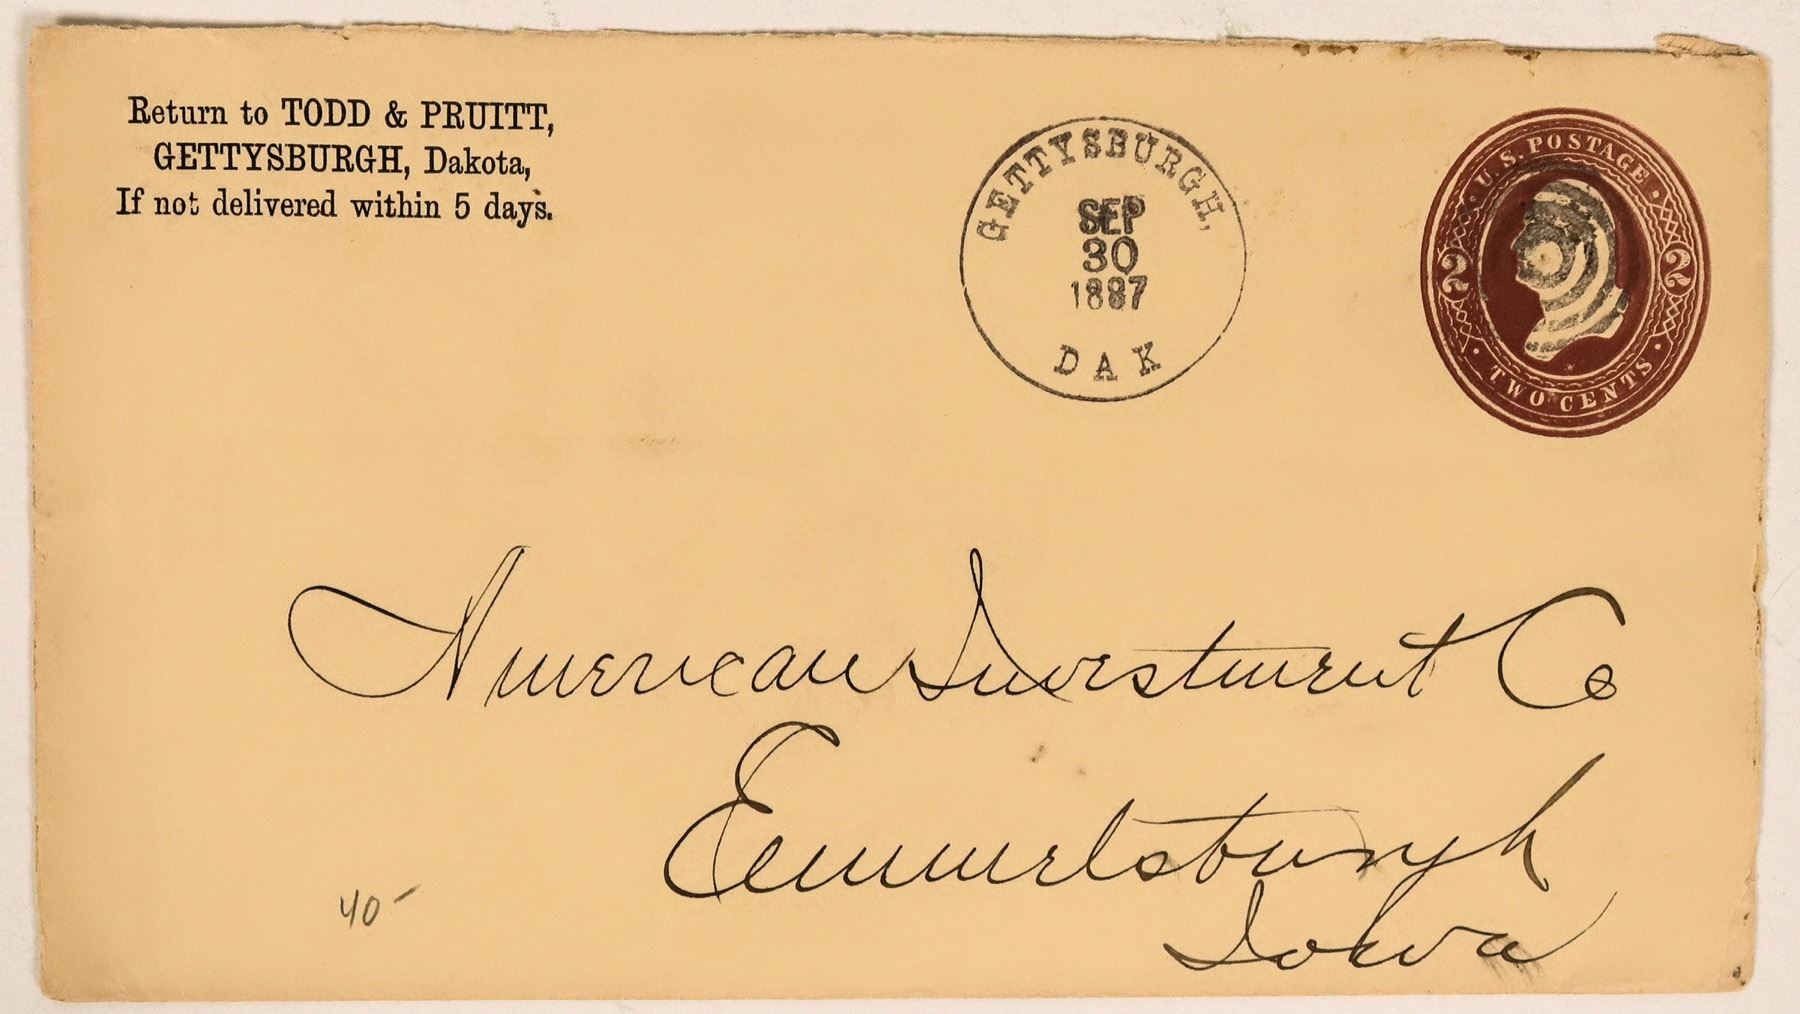 Return to TODD & PRUITT,
GETTYSBURGH, Dakota,
If not delivered within 5 days.
GETTYSBURGH,
SEP
30
1887
DAK
U.S. POSTAGE
2 2
TWO CENTS
American Investment Co
Emmetsburgh
Iowa
40-